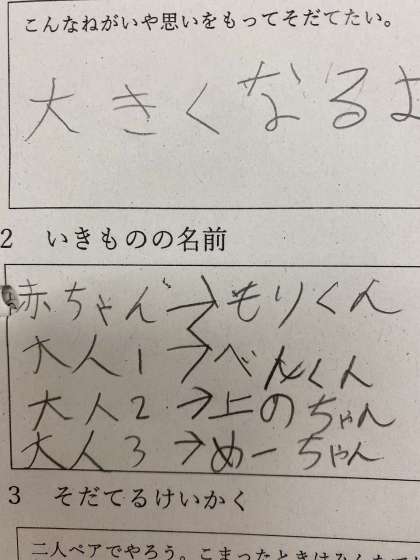 こんなねがいや思いをもってそだてたい。
大きくなるよ
2 いきものの名前
赤ちゃん→もりくん
大人1→べんくん
大人2→上のちゃん
大人3→めーちゃん
3 そだてるけいかく
二人ペアでやろう。こまったときはみんなで